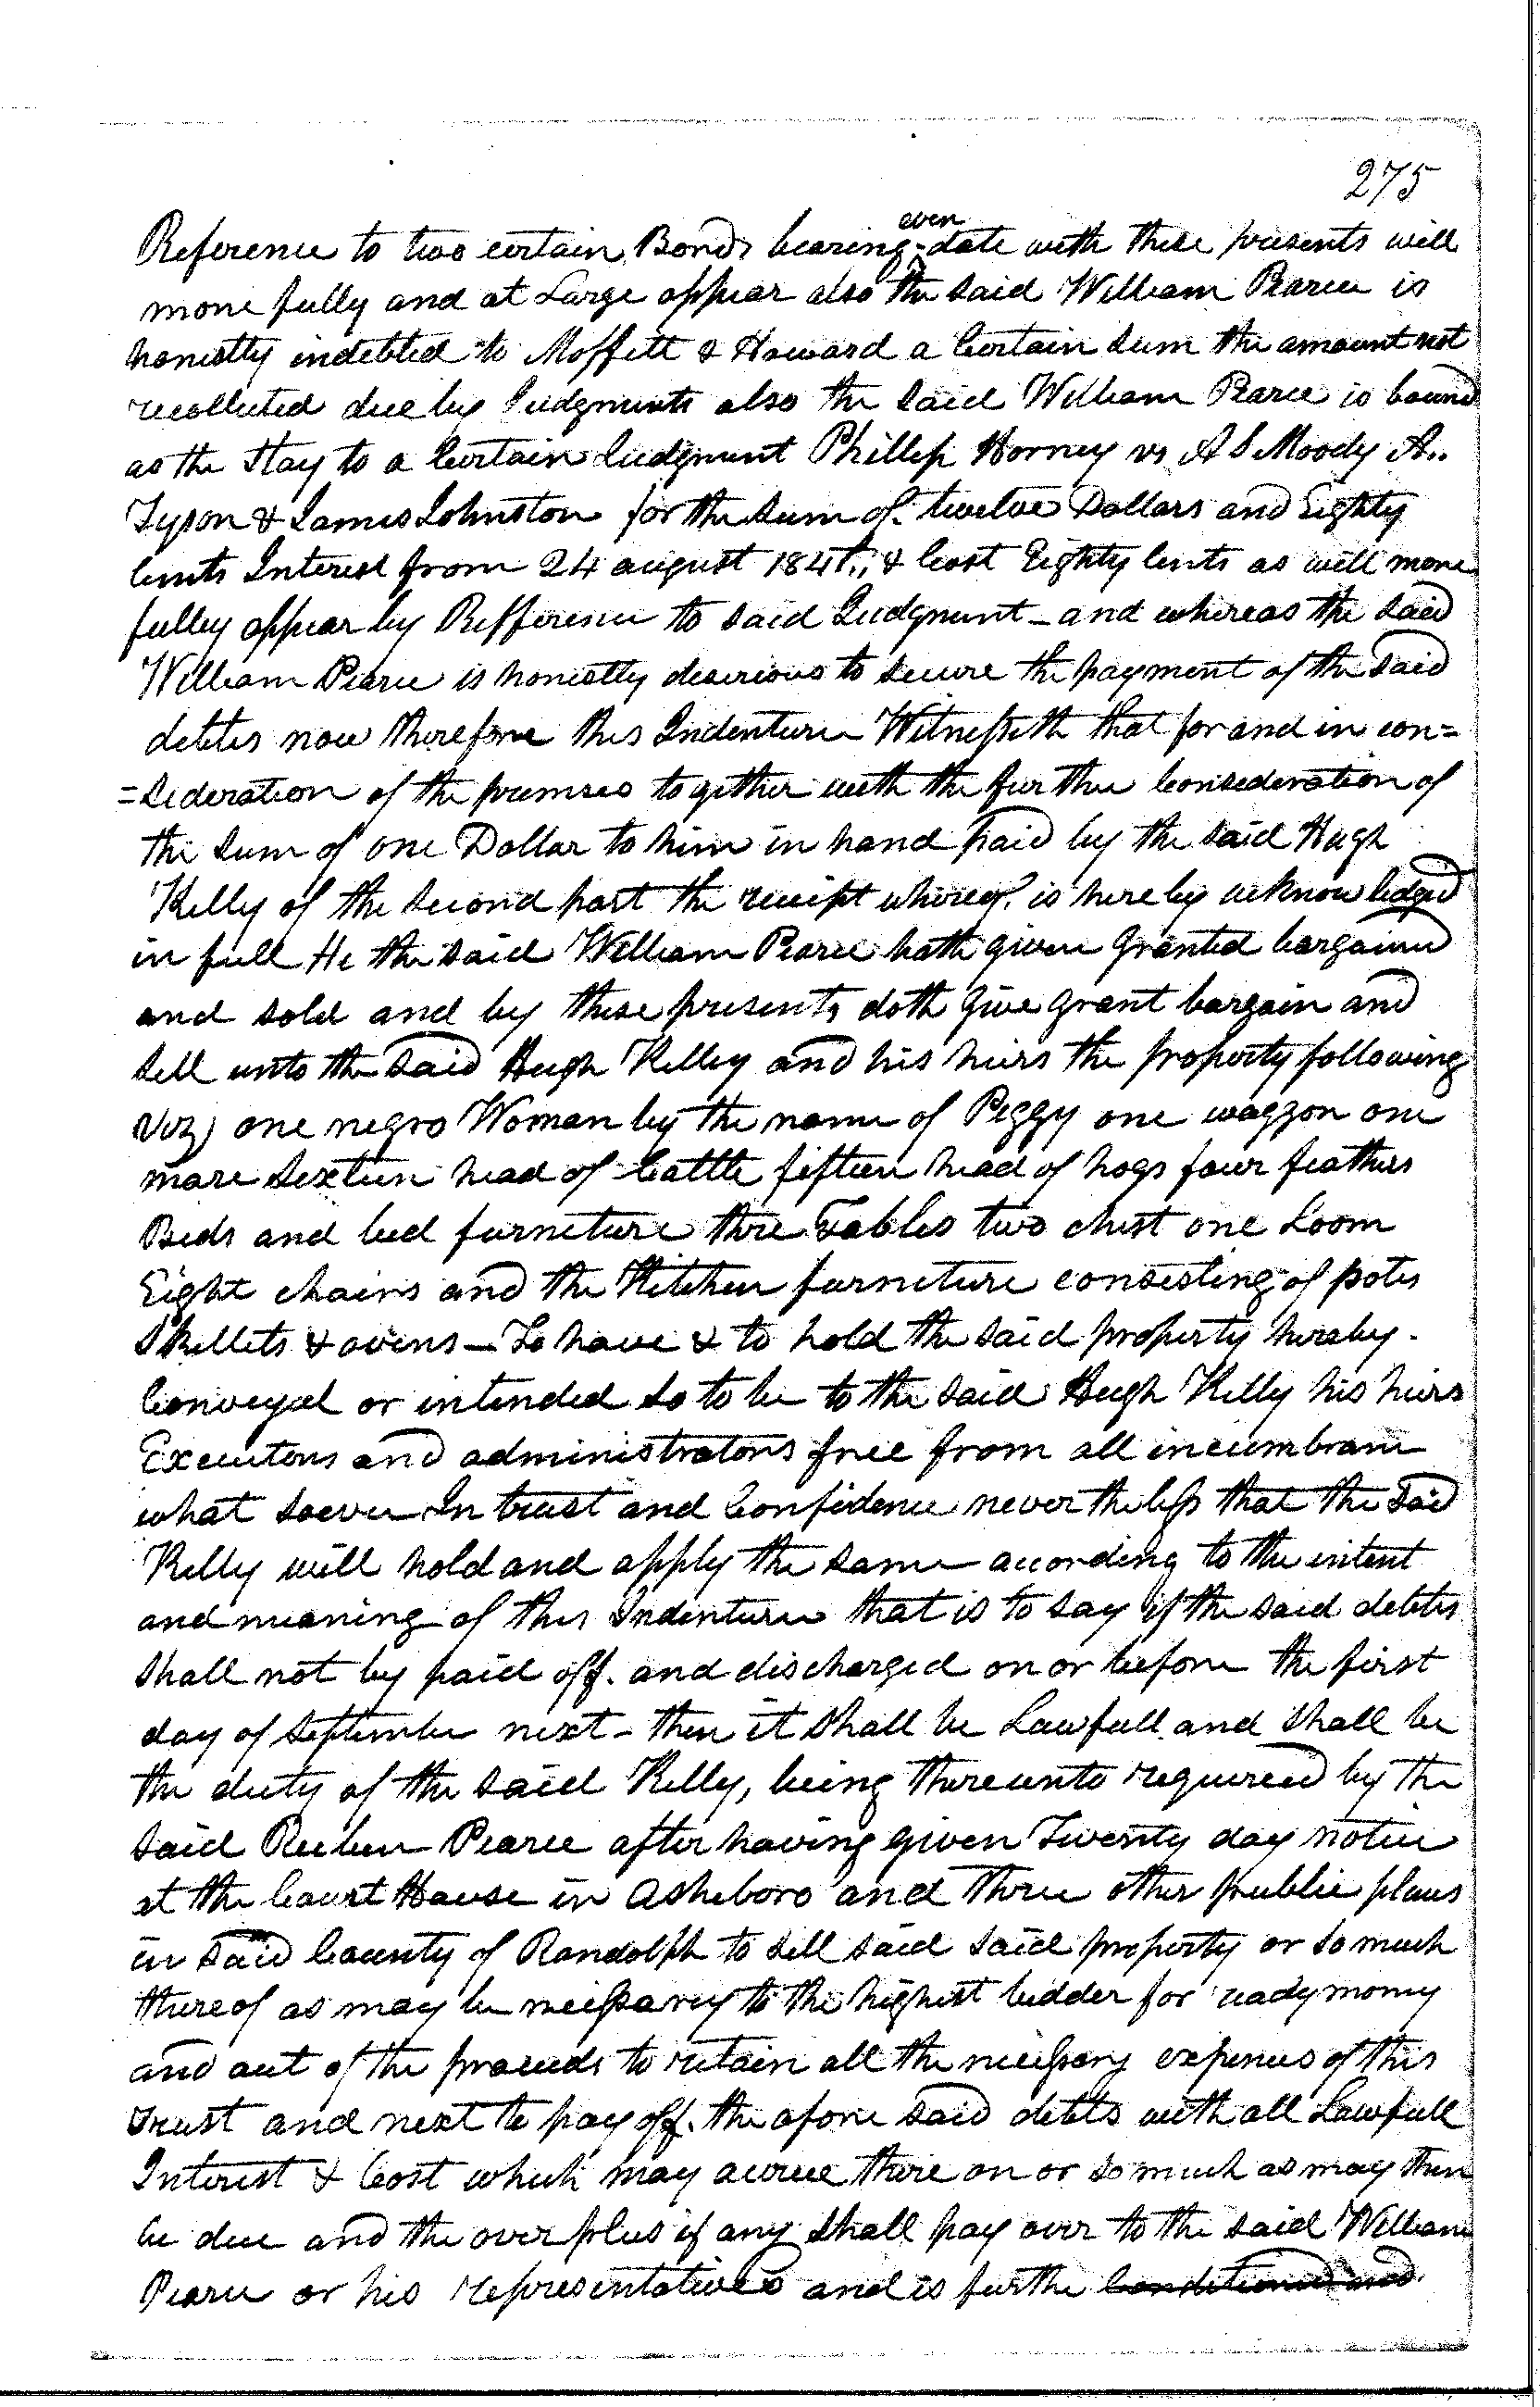 275
Reference to two certain Bonds bearing even date with these presents will
more fully and at Large appear also the said William Pearce is
honestly indebted to Moffett & Howard a Certain sum the amount not
recollected due by Judgments also the said William Pearce is bound
as the Stay to a Certain Judgment Phillip Horney vs A S Moody A..
Tyson & James Johnston for the sum of twelve Dollars and Eighty
Cents Interest from 24 august 1841., & Cost Eighty Cents as will more
fulley appear by Refference to said Judgment - and whereas the said
William Pearce is honestly desirious to secure the payment of the said
debtes now therefore this Indenture Witnesseth that for and in con=
=sideration of the premses together with the further Consideration of
the sum of one Dollar to him in hand paid by the said Hugh
Kelly of the second part the receipt whereof is hereby acknowledged
in full He the said William Pearce hath given Granted bargained
and sold and by these presents doth Give grant bargain and
sell unto the said Hugh Kelley and his heirs the property following
Viz) one negro Woman by the name of Peggy one waggon one
mare sexteen head of Cattle fifteen head of hogs four feathers
Beds and bed furneture three Tables two chest one Loom
Eight chairs and the Kitchen furneture consesting of potes
Skellets & ovens - To have & to hold the said property hereby
Conveyed or intended so to be to the said Hugh Kelly his heirs
Executors and administrators free from all incumbrance
what soever In trust and Confidence never theless that the said
Kelly will hold and apply the same according to the intent
and meaning of this Indenture that is to say if the said debtes
shall not by paid off. and discharged on or before the first
day of September next - then it shall be Lawfull and shall be
the duty of the said Kelly, being thereunto required by the
said Reuben Pearce after having given Twenty day notice
at the Court House in Asheboro and three other public places
in said County of Randolph to sell said said property or so much
thereof as may be necessarey to the highest bedder for ready money
and out of the proceeds to retain all the necessary expenses of this
Trust and next to pay off. the afore said debts with all Lawfull
Interest & Cost which may accrue there on or so much as may then
be due and the over plus if any shall pay over to the said William
Pearce or his representatives and is furthe Conditioned and